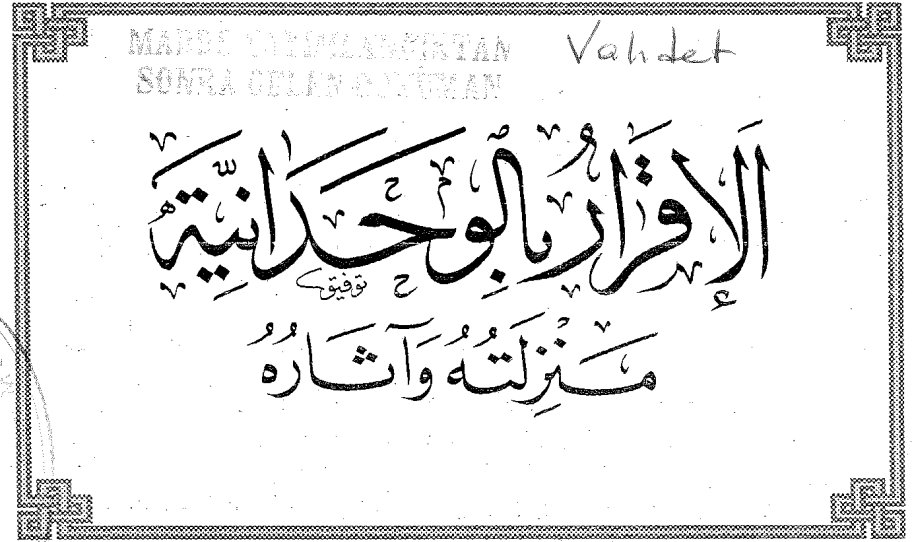 MADDE YAYIMLANDIKTAN
SONRA GELEN DOKÜMAN
Vahdet
اَلإِقْرَارُ بِالْوَحْدَانِيَّةِ
توفيق
مَنْزِلَتُهُ وَآثَارُهُ